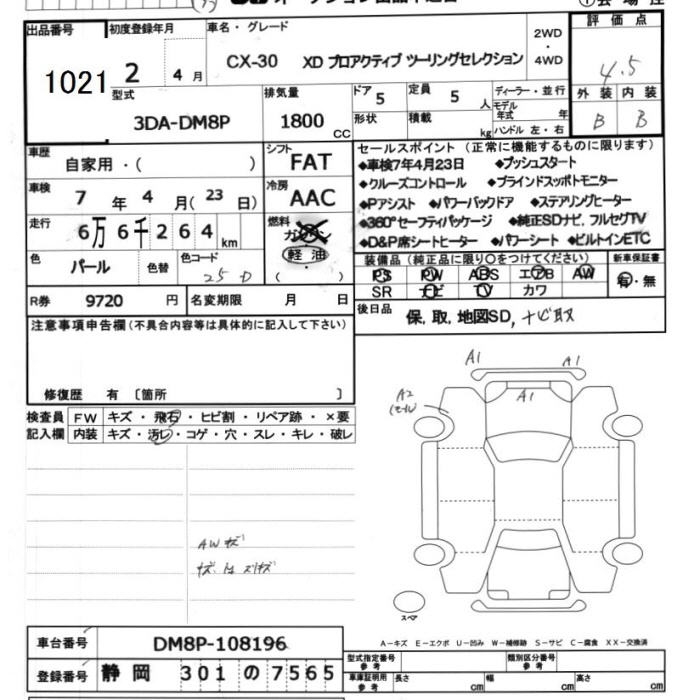 出品番号 1021
初度登録年月 2 4月
車名・グレード CX-30 XD プロアクティブ ツーリングセレクション
2WD・4WD
評価点 4.5
外装 内装
B B
型式 3DA-DM8P
排気量 1800 CC
ドア 5 定員 5 人
形状 積載 kg
ディーラー・並行
モデル年式 年
ハンドル 左・右
車歴 自家用・( )
シフト FAT
車検 7年 4月(23日)
冷房 AAC
走行 6万6千264 km
燃料 ガソリン 軽油 ・( )
色 パール 色替 色コード 25D
R券 9720 円 名変期限 月 日
セールスポイント (正常に機能するものに限ります)
◆車検7年4月23日 ◆プッシュスタート
◆クルーズコントロール ◆ブラインドスッポトモニター
◆Pアシスト ◆パワーバックドア ◆ステアリングヒーター
◆360°セーフティパッケージ ◆純正SDナビ, フルセグTV
◆D&P席シートヒーター ◆パワーシート ◆ビルトインETC
装備品(純正品に限り○をつけてください) 新車保証書
PS PW ABS エアB AW 有・無
SR ナビ TV カワ
後日品 保, 取, 地図SD, ナビ取
注意事項申告欄(不具合内容等は具体的に記入して下さい)
修復歴 有 〔箇所 〕
検査員 FW キズ・飛石・ヒビ割・リペア跡・×要
記入欄 内装 キズ・汚レ・コゲ・穴・スレ・キレ・破レ
AWキズ
A1 A1
A1
A2
スペア
A-キズ E-エクボ U-凹み W-補修跡 S-サビ C-腐食 XX-交換済
車台番号 DM8P-108196
登録番号 静岡 301 の 7565
型式指定番号 参考 類別区分番号 参考
車庫証明用 参考 長さ cm 幅 cm 高さ cm